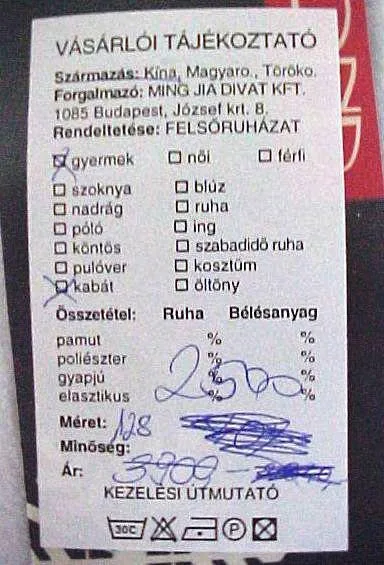 VÁSÁRLÓI TÁJÉKOZTATÓ
Származás: Kína, Magyaro., Töröko.
Forgalmazó: MING JIA DIVAT KFT.
1085 Budapest, József krt. 8.
Rendeltetése: FELSŐRUHÁZAT
gyermek női férfi
szoknya blúz
nadrág ruha
póló ing
köntös szabadidő ruha
pulóver kosztüm
kabát öltöny
Összetétel: Ruha Bélésanyag
pamut % %
poliészter % %
gyapjú % %
elasztikus % %
2500
Méret: 128
Minőség:
Ár: 3900 -
KEZELÉSI ÚTMUTATÓ
30C P